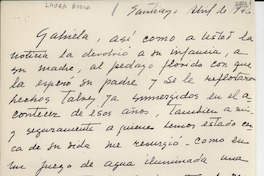 LAURA RODIG
Santiago Abril de 19
Gabriela, así como a usted la
noticia la devolvió a su infancia, a
su madre, al pedazo florido con que
la esperó su padre y se le reflotaron
hechos tales, ya sumergidos en el a
contecer de esos años, también a mí
y seguramente a quienes hemos estado cer
ca de su vida me resurgió - como en
un juego de agua iluminada una